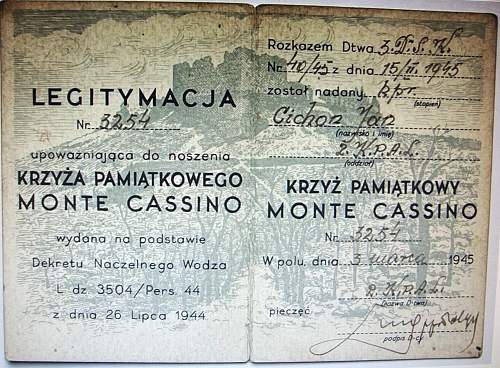 LEGITYMACJA
Nr. 3254
upoważniająca do noszenia
KRZYŻA PAMIĄTKOWEGO
MONTE CASSINO
wydana na podstawie
Dekretu Naczelnego Wodza
L dz 3504/Pers 44
z dnia 26 Lipca 1944
Rozkazem Dtwa 3. D. S. K.
Nr 40/45 z dnia 15/II. 1945
został nadany kpr.
(stopień)
Cichoń Jan
(nazwisko i imię)
2. K.P.A.L.
(oddział)
KRZYŻ PAMIĄTKOWY
MONTE CASSINO
Nr. 3254
W polu, dnia 5 marca 1945
2. K.P.A.L.
(nazwa D-twa)
pieczęć
podpis D-cy